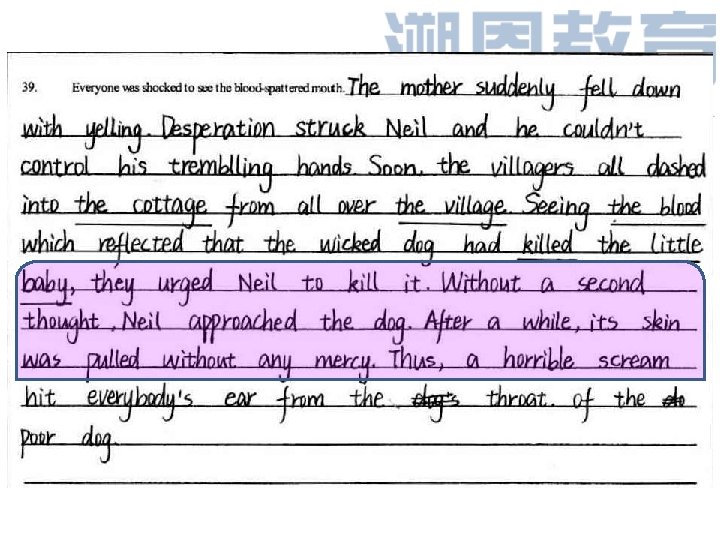 溯恩教育
39. Everyone was shocked to see the blood-spattered mouth. The mother suddenly fell down
with yelling. Desperation struck Neil and he couldn't
control his tremblling hands. Soon, the villagers all dashed
into the cottage from all over the village. Seeing the blood
which reflected that the wicked dog had killed the little
baby, they urged Neil to kill it. Without a second
thought, Neil approached the dog. After a while, its skin
was pulled without any mercy. Thus, a horrible scream
hit everybody's ear from the dog's throat. of the do
poor dog.